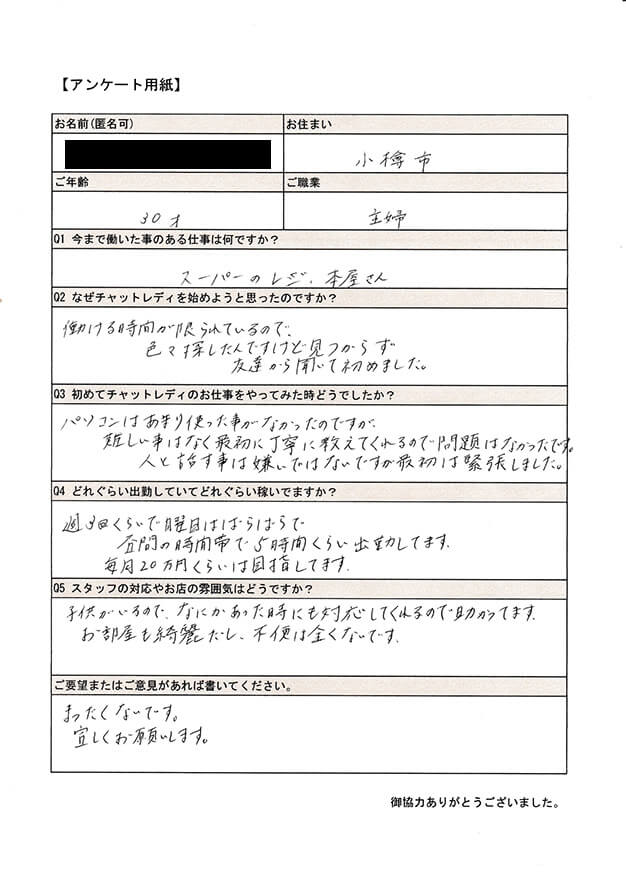 【アンケート用紙】
お名前(匿名可) お住まい
小樽市
ご年齢 ご職業
30才 主婦
Q1 今まで働いた事のある仕事は何ですか？
スーパーのレジ、本屋さん
Q2 なぜチャットレディを始めようと思ったのですか？
働ける時間が限られているので、
色々探したんですけど見つからず
友達から聞いて初めました。
Q3 初めてチャットレディのお仕事をやってみた時どうでしたか？
パソコンはあまり使った事がなかったのですが、
難しい事はなく最初に丁寧に教えてくれるので問題はなかったです。
人と話す事は嫌いではないですが最初は緊張しました。
Q4 どれぐらい出勤していてどれぐらい稼いでますか？
週3回くらいで曜日はばらばらで
昼間の時間帯で5時間くらい出勤してます。
毎月20万円くらいは目指してます。
Q5 スタッフの対応やお店の雰囲気はどうですか？
子供がいるので、なにかあった時にも対応してくれるので助かってます。
お部屋も綺麗だし、不便は全くないです。
ご要望またはご意見があれば書いてください。
まったくないです。
宜しくお願いします。
御協力ありがとうございました。